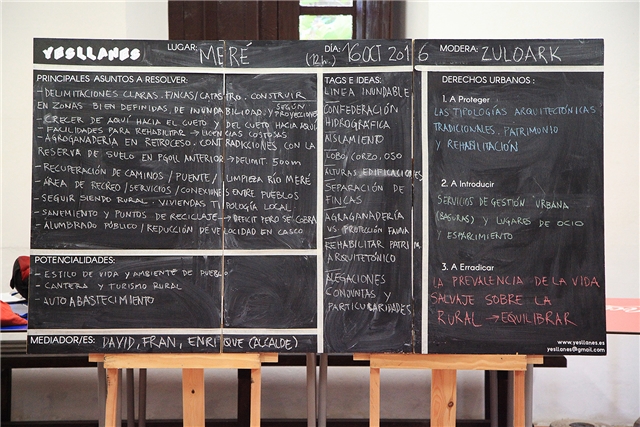 YESLLANES
LUGAR: MERÉ
DÍA: 16 OCT 2016
(12h.)
MODERA: ZULOARK
PRINCIPALES ASUNTOS A RESOLVER:
- DELIMITACIONES CLARAS. FINCAS/CATASTRO. CONSTRUIR
EN ZONAS BIEN DEFINIDAS, DE INUNDABILIDAD, Y SEGÚN PROYECCIONES
CRECER DE AQUÍ HACIA EL CUETO Y DEL CUETO HACIA AQUÍ
- FACILIDADES PARA REHABILITAR → LICENCIAS COSTOSAS
- AGROGANADERÍA EN RETROCESO. CONTRADICCIONES CON LA
RESERVA DE SUELO EN PGOU ANTERIOR → DELIMIT. 500m
- RECUPERACIÓN DE CAMINOS / PUENTE / LIMPIEZA RÍO MERÉ
- ÁREA DE RECREO / SERVICIOS / CONEXIONES ENTRE PUEBLOS
- SEGUIR SIENDO RURAL. VIVIENDAS TIPOLOGÍA LOCAL
- SANEMIENTO Y PUNTOS DE RECICLAJE → DEFICIT PERO SE COBRA
- ALUMBRADO PÚBLICO / REDUCCIÓN DE VELOCIDAD EN CASCO
POTENCIALIDADES:
- ESTILO DE VIDA Y AMBIENTE DE PUEBLO
- CANTERA Y TURISMO RURAL
- AUTOABASTECIMIENTO
MEDIADOR/ES: DAVID, FRAN, ENRIQUE (ALCALDE)
TAGS E IDEAS:
LINEA INUNDABLE
CONFEDERACIÓN
HIDROGRÁFICA
AISLAMIENTO
LOBO, CORZO, OSO
ALTURAS EDIFICACIONES
SEPARACIÓN DE
FINCAS
AGRAGANADERÍA
VS PROTECCIÓN FAUNA
REHABILITAR PATRIM.
ARQUITECTÓNICO
ALEGACIONES
CONJUNTAS Y
PARTICULARIDADES
DERECHOS URBANOS :
1. A Proteger
LAS TIPOLOGÍAS ARQUITECTÓNICAS
TRADICIONALES. PATRIMONIO
Y REHABILITACIÓN
2. A Introducir
SERVICIOS DE GESTIÓN URBANA
(BASURAS) Y LUGARES DE OCIO
Y ESPARCIMIENTO
3. A Erradicar
LA PREVALENCIA DE LA VIDA
SALVAJE SOBRE LA
RURAL → EQUILIBRAR
www.yesllanes.es
yesllanes@gmail.com